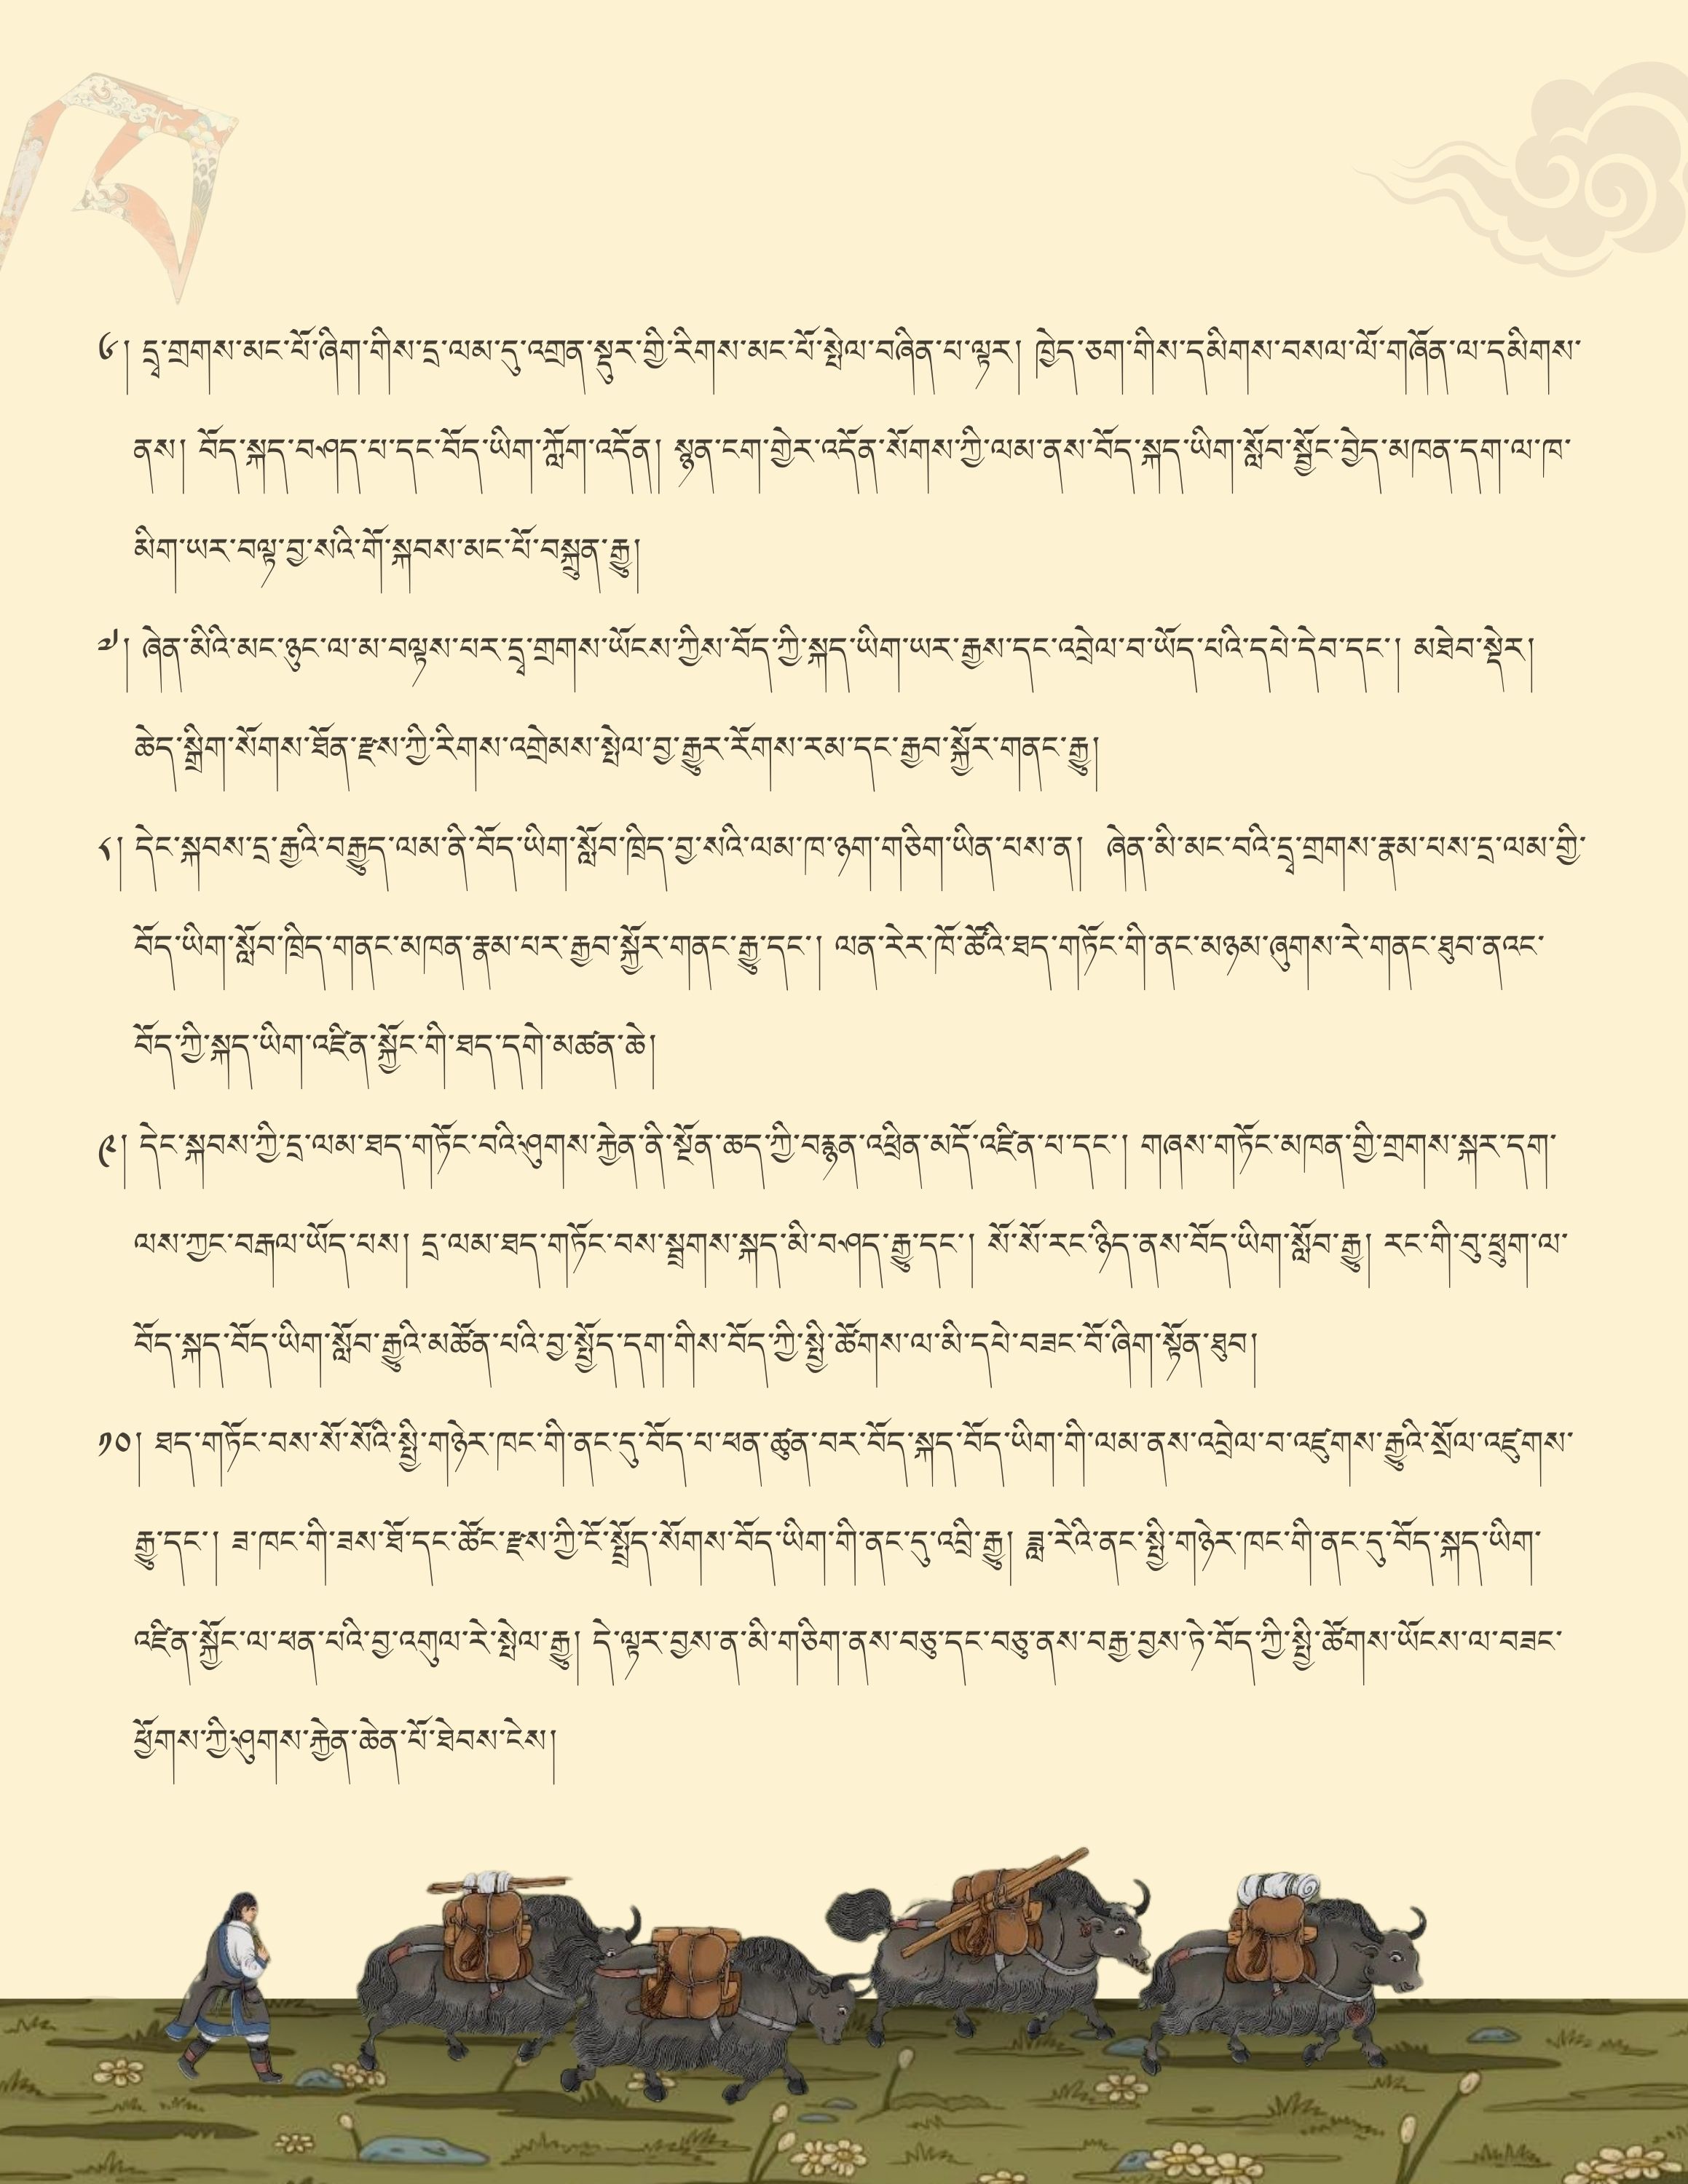 ༦། དྲྭ་གྲགས་མང་པོ་ཞིག་གིས་དྲ་ལམ་དུ་འགྲན་སྡུར་གྱི་རིགས་མང་པོ་སྤེལ་བཞིན་པ་ལྟར། ཁྱེད་ཅག་གིས་དམིགས་བསལ་ལོ་གཞོན་ལ་དམིགས་
ནས། བོད་སྐད་བཤད་པ་དང་བོད་ཡིག་ཀློག་འདོན། སྙན་ངག་གྱེར་འདོན་སོགས་ཀྱི་ལམ་ནས་བོད་སྐད་ཡིག་སློབ་སྦྱོང་བྱེད་མཁན་དག་ལ་ཁ་
མིག་ཡར་བལྟ་བྱ་སའི་གོ་སྐབས་མང་པོ་བསྐྲུན་རྒྱུ།
༧། ཞེན་མིའི་མང་ཉུང་ལ་མ་བལྟས་པར་དྲྭ་གྲགས་ཡོངས་ཀྱིས་བོད་ཀྱི་སྐད་ཡིག་ཡར་རྒྱས་དང་འབྲེལ་བ་ཡོད་པའི་དཔེ་དེབ་དང་། མཐེབ་སྡེར།
ཆེད་སྒྲིག་སོགས་ཐོན་རྫས་ཀྱི་རིགས་འགྲེམས་སྤེལ་བྱ་རྒྱུར་རོགས་རམ་དང་རྒྱབ་སྐྱོར་གནང་རྒྱུ།
༨། དེང་སྐབས་དྲ་རྒྱའི་བརྒྱུད་ལམ་ནི་བོད་ཡིག་སློབ་ཁྲིད་བྱ་སའི་ལམ་ཁ་ཉག་གཅིག་ཡིན་པས་ན། ཞེན་མི་མང་བའི་དྲྭ་གྲགས་རྣམ་པས་དྲ་ལམ་གྱི་
བོད་ཡིག་སློབ་ཁྲིད་གནང་མཁན་རྣམ་པར་རྒྱབ་སྐྱོར་གནང་རྒྱུ་དང་། ལན་རེར་ཁོ་ཚོའི་ཐད་གཏོང་གི་ནང་མཉམ་ཞུགས་རེ་གནང་ཐུབ་ནའང་
བོད་ཀྱི་སྐད་ཡིག་འཛིན་སྐྱོང་གི་ཐད་དགེ་མཚན་ཆེ།
༩། དེང་སྐབས་ཀྱི་དྲ་ལམ་ཐད་གཏོང་བའི་ཤུགས་རྐྱེན་ནི་སྔོན་ཆད་ཀྱི་བརྙན་འཕྲིན་མདོ་འཛིན་པ་དང་། གཞས་གཏོང་མཁན་གྱི་གྲགས་སྐར་དག་
ལས་ཀྱང་བརྒལ་ཡོད་པས། དྲ་ལམ་ཐད་གཏོང་བས་སྦྲགས་སྐད་མི་བཤད་རྒྱུ་དང་། སོ་སོ་རང་ཉིད་ནས་བོད་ཡིག་སློབ་རྒྱུ། རང་གི་བུ་ཕྲུག་ལ་
བོད་སྐད་བོད་ཡིག་སློབ་རྒྱུའི་མཚོན་པའི་བྱ་སྤྱོད་དག་གིས་བོད་ཀྱི་སྤྱི་ཚོགས་ལ་མི་དཔེ་བཟང་པོ་ཞིག་སྟོན་ཐུབ།
༡༠། ཐད་གཏོང་བས་སོ་སོའི་སྤྱི་གཉེར་ཁང་གི་ནང་དུ་བོད་པ་ཕན་ཚུན་བར་བོད་སྐད་བོད་ཡིག་གི་ལམ་ནས་འབྲེལ་བ་འཛུགས་རྒྱུའི་སྲོལ་འཛུགས་
རྒྱུ་དང་། ཟ་ཁང་གི་ཟས་ཐོ་དང་ཚོང་རྫས་ཀྱི་ངོ་སྤྲོད་སོགས་བོད་ཡིག་གི་ནང་དུ་འབྲི་རྒྱུ། ཟླ་རེའི་ནང་སྤྱི་གཉེར་ཁང་གི་ནང་དུ་བོད་སྐད་ཡིག་
འཛིན་སྐྱོང་ལ་ཕན་པའི་བྱ་འགུལ་རེ་སྤེལ་རྒྱུ། དེ་ལྟར་བྱས་ན་མི་གཅིག་ནས་བཅུ་དང་བཅུ་ནས་བརྒྱ་བྱས་ཏེ་བོད་ཀྱི་སྤྱི་ཚོགས་ཡོངས་ལ་བཟང་
ཕྱོགས་ཀྱི་ཤུགས་རྐྱེན་ཆེན་པོ་ཐེབས་ངེས།